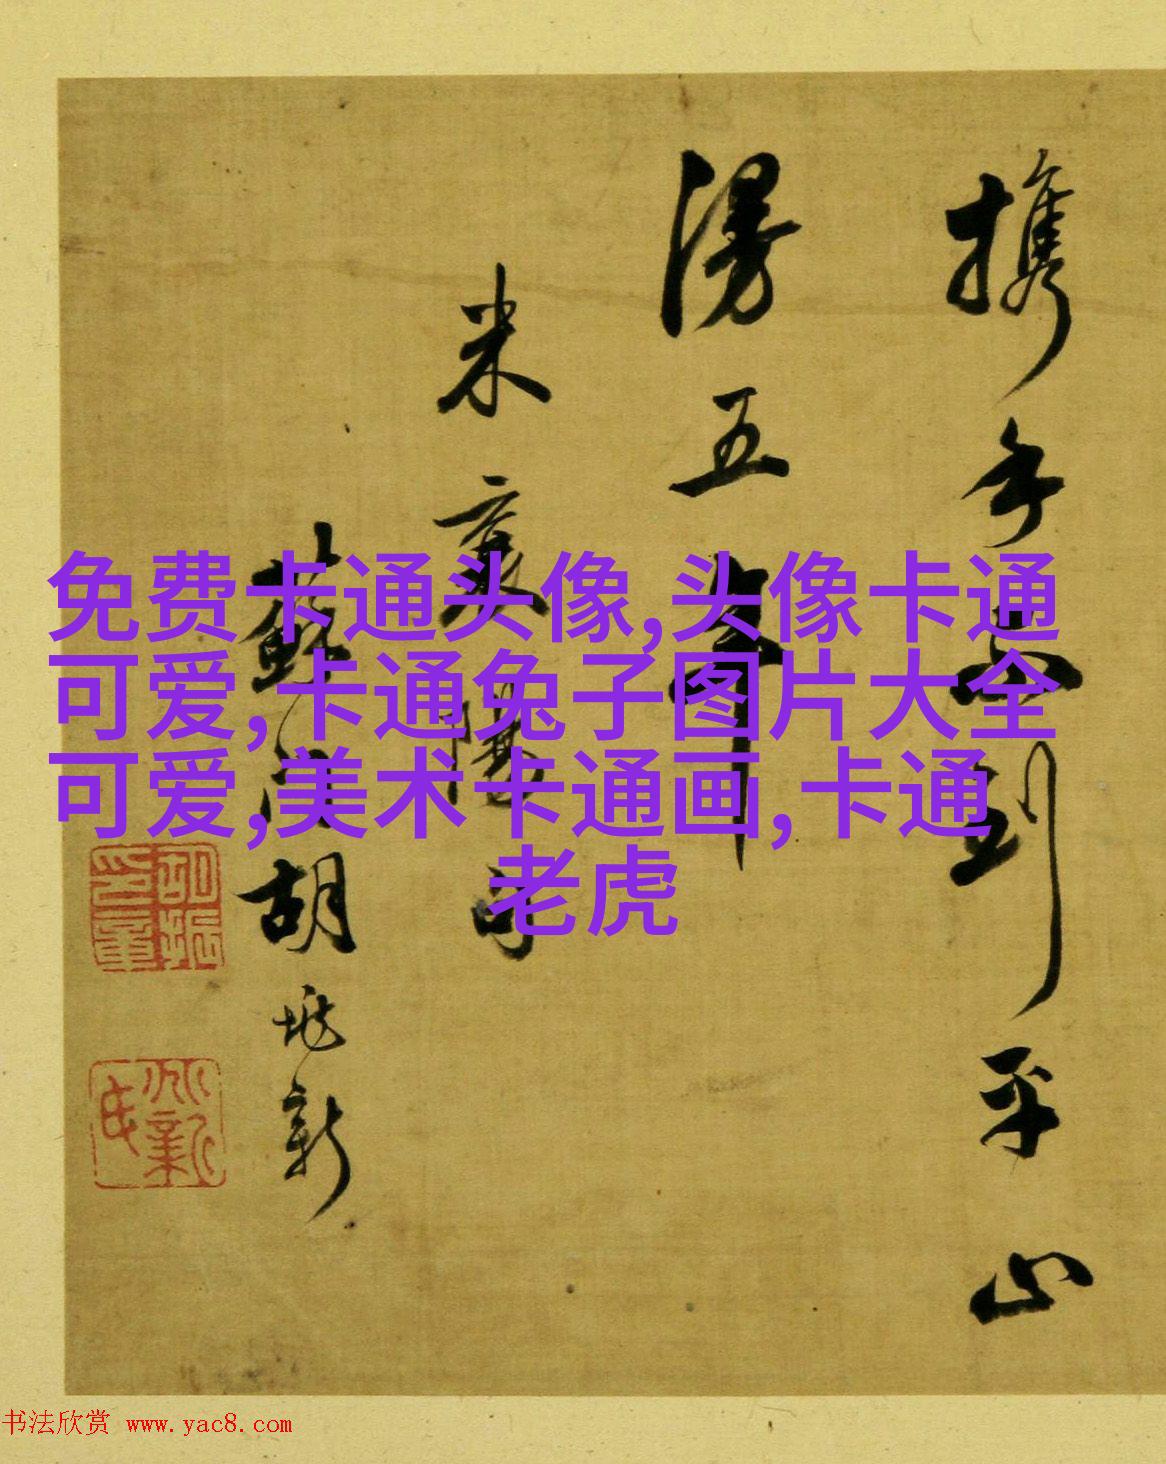 携手到平山
漫五年
米襄陽句
蘇胡新
免费卡通头像,头像卡通
可爱,卡通兔子图片大全
可爱,美术卡通画,卡通
老虎
书法欣赏 www.yac8.com